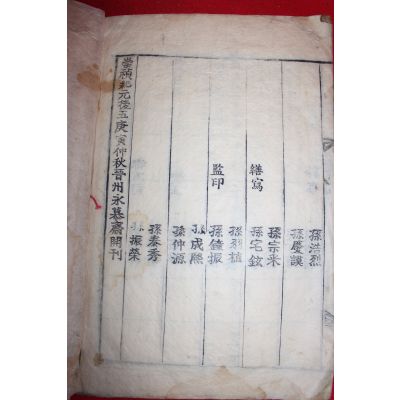 孫浩烈
孫慶謨
孫宗釆
繕寫
孫宅鉉
孫烈植
監印
孫鐘振
孫成熙
孫仲源
孫泰秀
孫振榮
崇禎紀元後五庚寅仲秋晉州永慕齋開刊